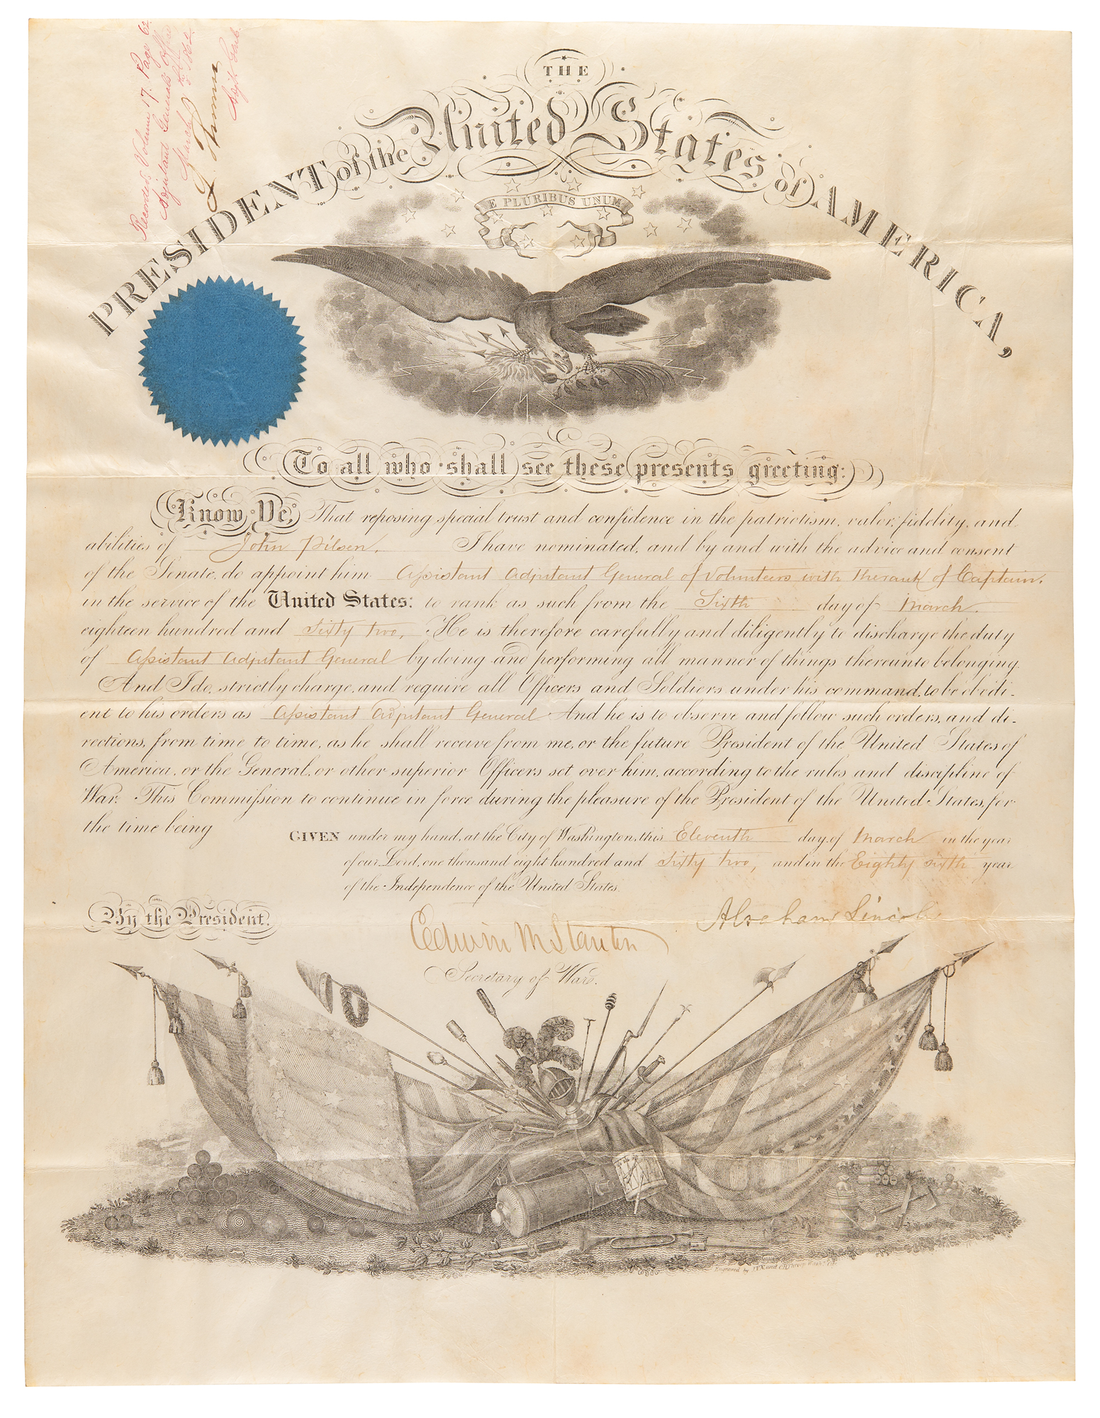 Recorded, Volume 17. Page
Adjutant General's Office
March
L Thomas
Adjt. Genl.
THE
PRESIDENT of the United States of AMERICA,
E PLURIBUS UNUM
To all who shall see these presents greeting:
Know Ye, That reposing special trust and confidence in the patriotism, valor, fidelity, and
abilities of John Pilsen. I have nominated, and by and with the advice and consent
of the Senate, do appoint him Assistant Adjutant General of Volunteers with the rank of Captain.
in the service of the United States: to rank as such from the Sixth day of March.
eighteen hundred and Sixty two. He is therefore carefully and diligently to discharge the duty
of Assistant Adjutant General by doing and performing all manner of things thereunto belonging.
And I do strictly charge, and require all Officers and Soldiers under his command, to be obedi-
ent to his orders as Assistant Adjutant General And he is to observe and follow such orders, and di-
rections, from time to time, as he shall receive from me, or the future President of the United States of
America, or the General, or other superior Officers set over him, according to the rules and discipline of
War. This Commission to continue in force during the pleasure of the President of the United States, for
the time being
GIVEN under my hand, at the City of Washington, this Eleventh day of March in the year
of our Lord, one thousand eight hundred and Sixty two, and in the Eighty sixth year
of the Independence of the United States.
By the President.
Abraham Lincoln
Edwin M Stanton
Secretary of War.